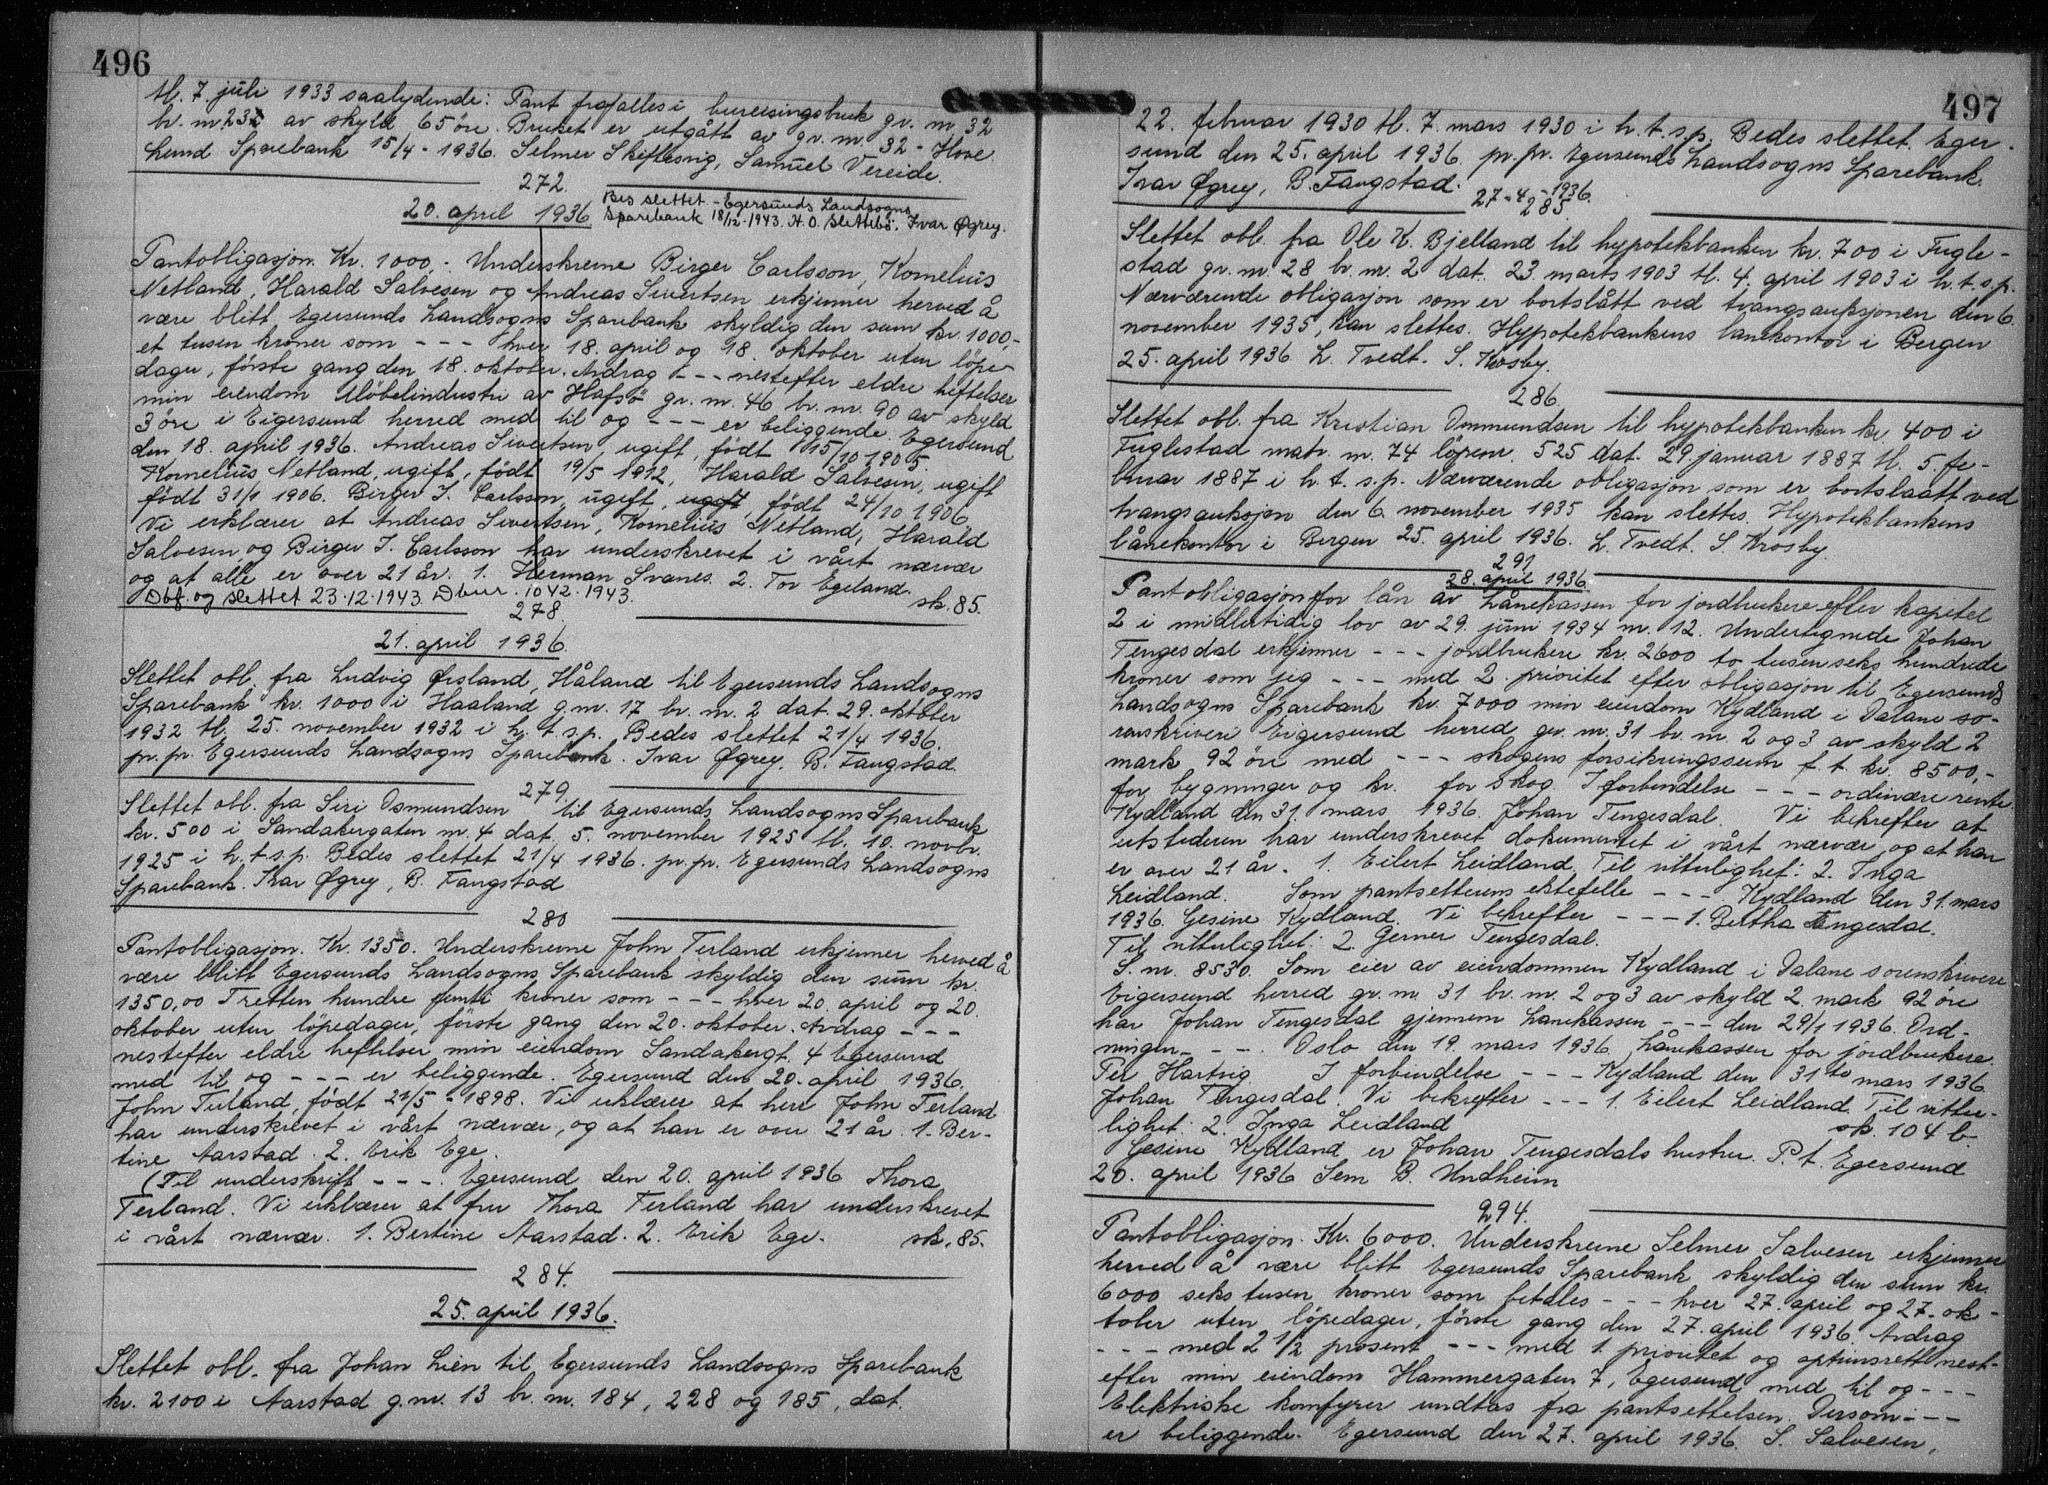 496
tl. 7. juli 1933 saalydende: Pant frafalles i bureisingsbruk gr. nr. 32
br. nr. 23 av skyld 65 öre. Bruket er utgått av gr. nr. 32 - Hove
lund Sparebank 15/4 - 1936. Selmer Skeflesvig, Samuel Vereide.
272.
20. april 1936
Bes slettet - Egersunds Landsogns
Sparebank 18/12-1943. H. O. Slettebö. Ivar Øgrey.
Pantobligasjon. Kr. 1000.- Underskrevne Birger Carlsson, Kornelius
Netland, Harald Salvesen og Andreas Sivertsen erkjenner herved å
være blitt Egersunds Landsogns Sparebank skyldig den sum kr. 1000,-
et tusen kroner som - - - hver 18. april og 18. oktober uten löpe-
dager, förste gang den 18. oktober. Avdrag - - - nestefter eldre heftelser
min eiendom Möbelindustri av Hafsö gr. nr. 46 br. nr. 90 av skyld
3 öre i Eigersund herred med til og - - - er beliggende. Egersund
den 18. april 1936. Andreas Sivertsen, ugift, födt 15/10 1905.
Kornelius Netland, ugift, födt 19/5 1912, Harald Salvesen, ugift
födt 31/1 1906. Birger J. Carlsson, ugift, ugift, födt 24/10 1906
Vi erklærer at Andreas Sivertsen, Kornelius Netland, Harald
Salvesen og Birger J. Carlsson har underskrevet i vårt nærvær
og at alle er over 21 år. 1. Herman Svanes. 2. Tor Egeland.
Dbf. og slettet 23-12-1943. Dbnr. 1042-1943.
sk. 85.
278
21. april 1936.
Slettet obl. fra Ludvig Øisland, Håland til Egersunds Landsogns
Sparebank kr. 1000 i Haaland g.nr. 17 br. nr. 2 dat. 29. oktober
1932 tl. 25. november 1932 i h.t.s.p. Bedes slettet 21/4 1936.
pr. pr. Egersunds Landsogns Sparebank. Ivar Øgrey. B. Fangstad.
279
Slettet obl. fra Siri Osmundsen til Egersunds Landsogns Sparebank
kr. 500 i Sandakergaten nr. 4 dat. 5. november 1925 tl. 10. novbr.
1925 i h.t.s.p. Bedes slettet 21/4 1936. pr. pr. Egersunds Landsogns
Sparebank. Ivar Øgrey, B. Fangstad
280
Pantobligasjon. Kr. 1350. Underskrevne John Terland erkjenner herved å
være blitt Egersunds Landsogns Sparebank skyldig den sum kr.
1350,00 Tretten hundre femti kroner som - - - hver 20. april og 20.
oktober uten löpedager, förste gang den 20. oktober. Avdrag - - -
nestefter eldre heftelser min eiendom Sandakergt. 4 Egersund
med til og - - - er beliggende. Egersund den 20. april 1936.
John Terland, födt 21/5 - 1898. Vi erklærer at herr John Terland
har underskrevet i vårt nærvær, og at han er over 21 år. 1. Ber-
tine Aarstad. 2. Erik Ege.
(Til underskrift - - -. Egersund den 20. april 1936 Thora
Terland. Vi erklærer at fru Thora Terland har underskrevet
i vårt nærvær. 1. Bertine Aarstad. 2. Erik Ege. sk. 85.
284.
25. april 1936.
Slettet obl. fra Johan Lien til Egersunds Landsogns Sparebank
kr. 2100 i Aarstad g.nr. 13 br. nr. 184, 228 og 185, dat.
497
22. februar 1930 tl. 7. mars 1930 i h.t.s.p. Bedes slettet. Eger-
sund den 25. april 1936. pr. pr. Egersunds Landsogns Sparebank
Ivar Øgrey, B. Fangstad.
27-4-1936.
285
Slettet obl. fra Ole K. Bjelland til hypotekbanken kr. 700 i Fugle-
stad gr. nr. 28 br. nr. 2 dat. 23. marts 1903 tl. 4. april 1903 i h.t.s.p.
Nærværende obligasjon som er bortslått ved tvangsauksjonen den 6.
november 1935, kan slettes. Hypotekbankens lånekontor i Bergen
25. april 1936. L. Tvedt. S. Krosby.
286
Slettet obl. fra Kristian Ommundsen til hypotekbanken kr. 400 i
Fuglestad matr. nr. 74 löpenr. 525 dat. 29. januar 1887 tl. 5. fe-
bruar 1887 i h.t.s.p. Nærværende obligasjon som er bortslaatt ved
tvangsauksjon den 6. november 1935 kan slettes. Hypotekbankens
lånekontor i Bergen 25. april 1936. L. Tvedt. S. Krosby.
291
28. april 1936.
Pantobligasjon for lån av Lånekassen for jordbrukere efter kapitel
2 i midlertidig lov av 29. juni 1934 nr. 12. Undertegnede Johan
Tengesdal erkjenner - - - jordbrukere kr. 2600 to tusen seks hundrede
kroner som jeg - - - med 2. prioritet efter obligasjon til Egersunds
Landsogns Sparebank kr. 7000 min eiendom Kydland i Dalane so-
renskriveri Eigersund herred, gr. nr. 31 br. nr. 2 og 3 av skyld 2
mark 92 öre med - - - skogens forsikringssum f. t. kr. 8500,-
for bygninger og kr. for skog. I forbindelse - - - ordinære rente
Kydland den 31. mars 1936. Johan Tengesdal. Vi bekrefter at
utstederen har underskrevet dokumentet i vårt nærvær og at han
er over 21 år. 1. Eilert Leidland. Til vitterlighet: 2. Inga
Leidland. Som pantsetterens ektefelle - - - Kydland den 31. mars
1936. Gesine Kydland. Vi bekrefter - - - 1. Bertha Tengesdal.
Til vitterlighet: 2. Gerner Tengesdal.
S. nr. 8530. Som eier av eiendommen Kydland i Dalane sorenskriveri
Eigersund herred gr. nr. 31 br. nr. 2 og 3 av skyld 2 mark 92 öre
har Johan Tengesdal gjennem Lånekassen - - - den 29/1 1936. Ord-
ningen - - -. Oslo den 19. mars 1936. Lånekassen for jordbrukere.
Per Hartvig I forbindelse - - - Kydland den 31te mars 1936
Johan Tengesdal. Vi bekrefter - - - 1. Eilert Leidland. Til vitter-
lighet: 2. Inga Leidland sk. 104 b
Gesine Kydland er Johan Tengesdals hustru. P. t. Egersund
20. april 1936 Sem B. Undheim
294.
Pantobligasjon. Kr. 6000. Underskrevne Selmer Salvesen erkjenner
herved å være blitt Egersunds Sparebank skyldig den sum kr.
6000 seks tusen kroner som betales - - - hver 27. april og 27. ok-
tober uten löpedager, förste gang den 27. april 1936. Avdrag
- - - med 2 1/2 prosent - - - med 1. prioritet og optrinsrett nest-
efter min eiendom Hammergaten 7, Egersund med til og - - -
Elektriske komfyrer undtas fra pantsettelsen. Dersom - - -
er beliggende. Egersund den 27. april 1936. S. Salvesen,